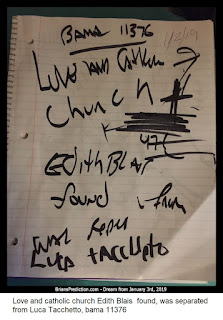 BAMA 11376
LOVE AND
CHURCH
EDITH BLAIS
found from
was
LUCA
BriansPrediction.com - Dream from January 3rd, 2019
Love and catholic church Edith Blais found, was separated
from Luca Tacchetto, bama 11376